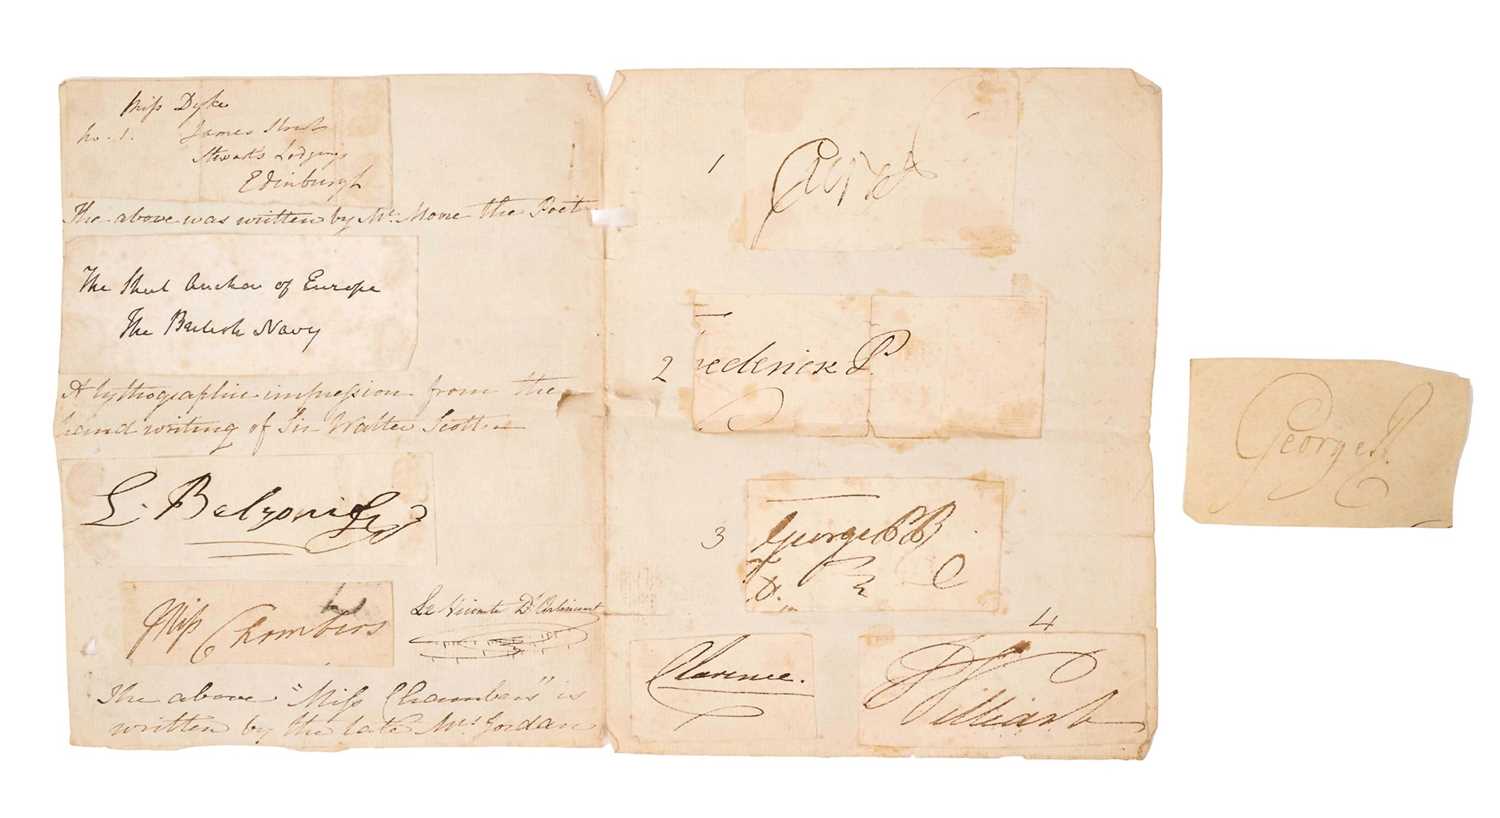 Miss Dyke
No. 1. James Street
Stewarts Lodgings
Edinburgh
The above was written by Mr. More the Poet
The Sheet Anchor of Europe
The British Navy
A lythographic impression from the
hand writing of Sir Walter Scott
L. Belzoni
Miss Chambers
Le Vicomte D'Arlincourt
The above "Miss Chambers" is
written by the late Mrs Jordan
1
2 rederick P.
3 George PR
4
Clarence.
William
George R.